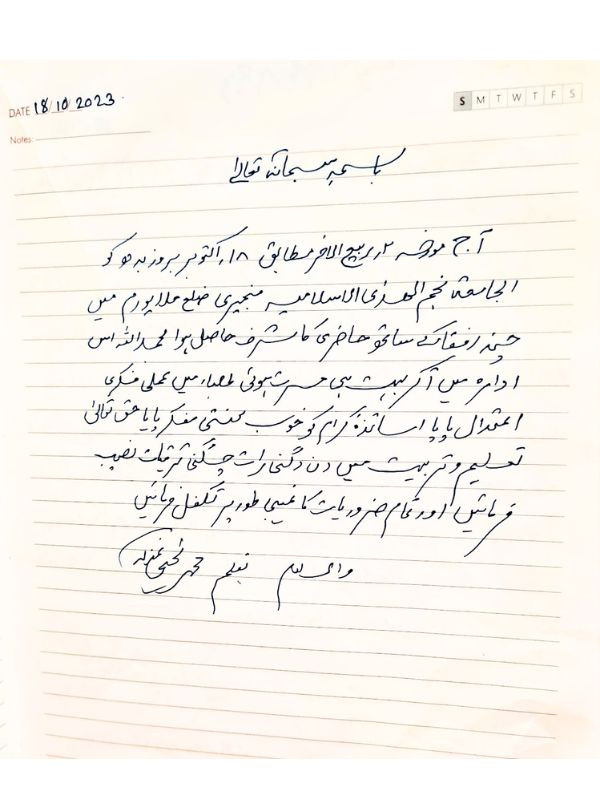 DATE 18/10/2023
S M T W T F S
Notes:
باسمہ سبحانہ تعالیٰ
آج مورخہ ۲؍ربیع الآخر مطابق ۱۸؍اکتوبر بروز بدھ کو
الجامعۃ نجم الھدیٰ الاسلامیہ منجیری ضلع ملاپورم میں
چند رفقاء کے ساتھ حاضری کا شرف حاصل ہوا بحمداللہ اس
ادارہ میں آکر بہت ہی مسرت ہوئی طلباء میں عملی فکری
اعتدال پایا اساتذۂ کرام کو خوب محنتی مفکر پایا حق تعالیٰ
تعلیم و تربیت میں دن دگنی رات چگنی ترقیات نصیب
فرمائیں اور تمام ضروریات کا غیبی طور پر تکفل فرمائیں
والسلام بقلم محمد